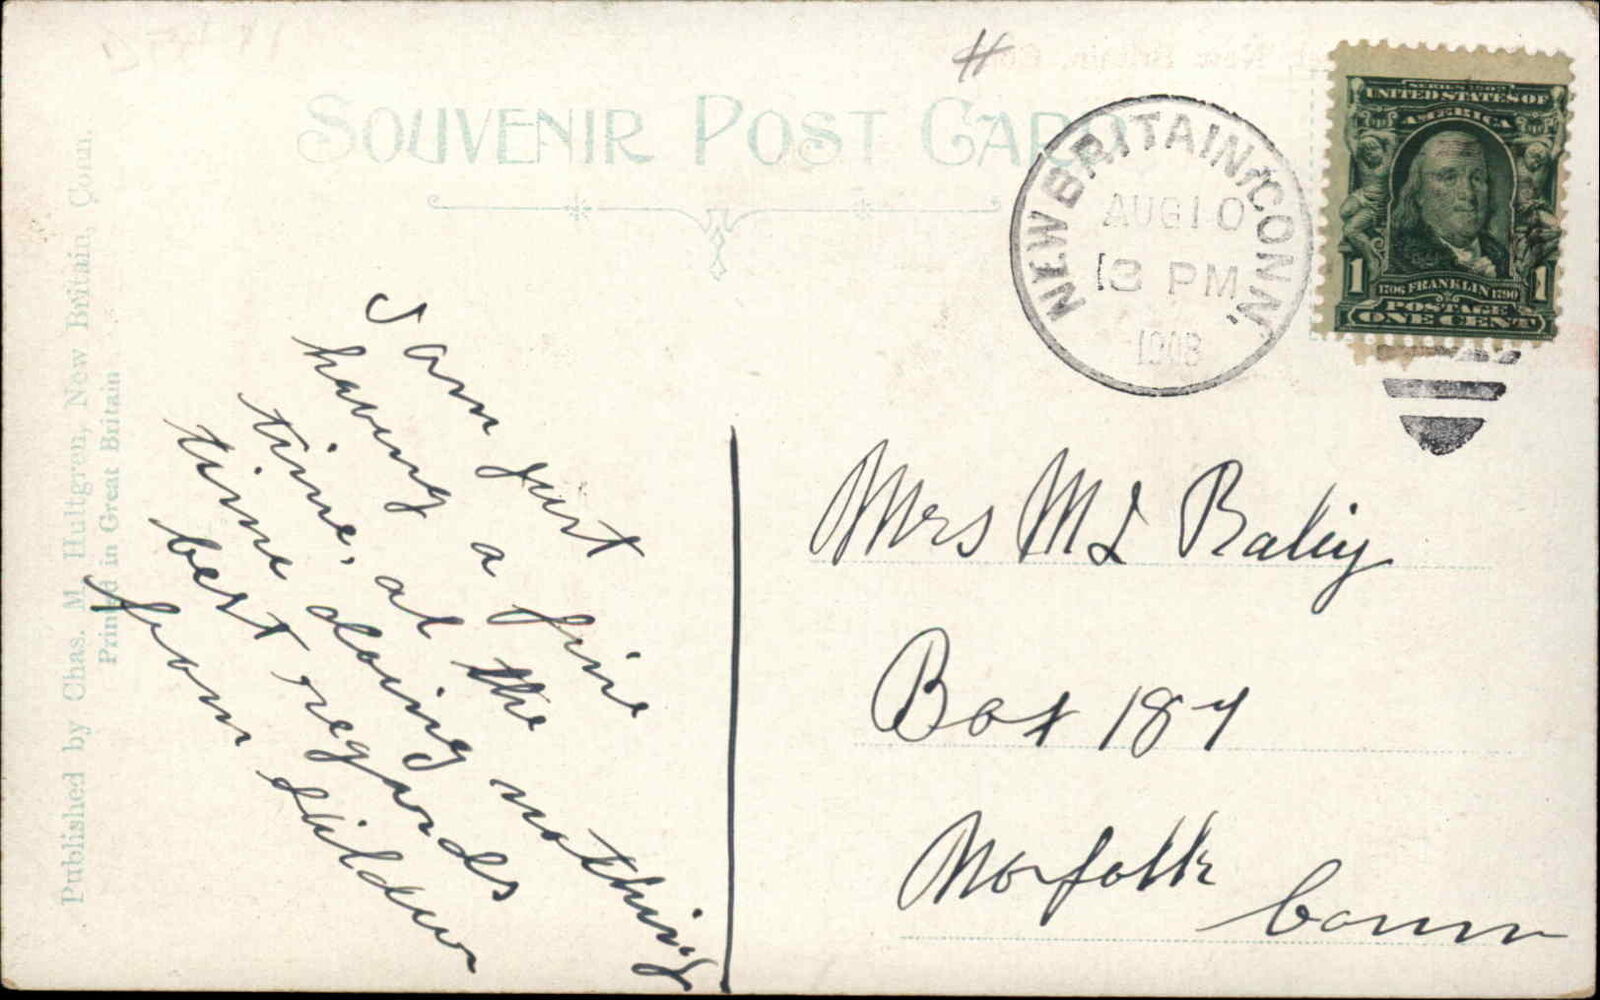 SOUVENIR POST CARD
Published by Chas. M. Hultgren, New Britain, Conn.
Printed in Great Britain
NEW BRITAIN, CONN.
AUG 10
3 PM
1908
SERIES 1902
UNITED STATES OF
AMERICA
1 1706 FRANKLIN 1790 1
POSTAGE
ONE CENT
I am just
having a fine
time, at the
time doing nothing
best regards
from
Mrs M L
Box 187
Norfolk Conn